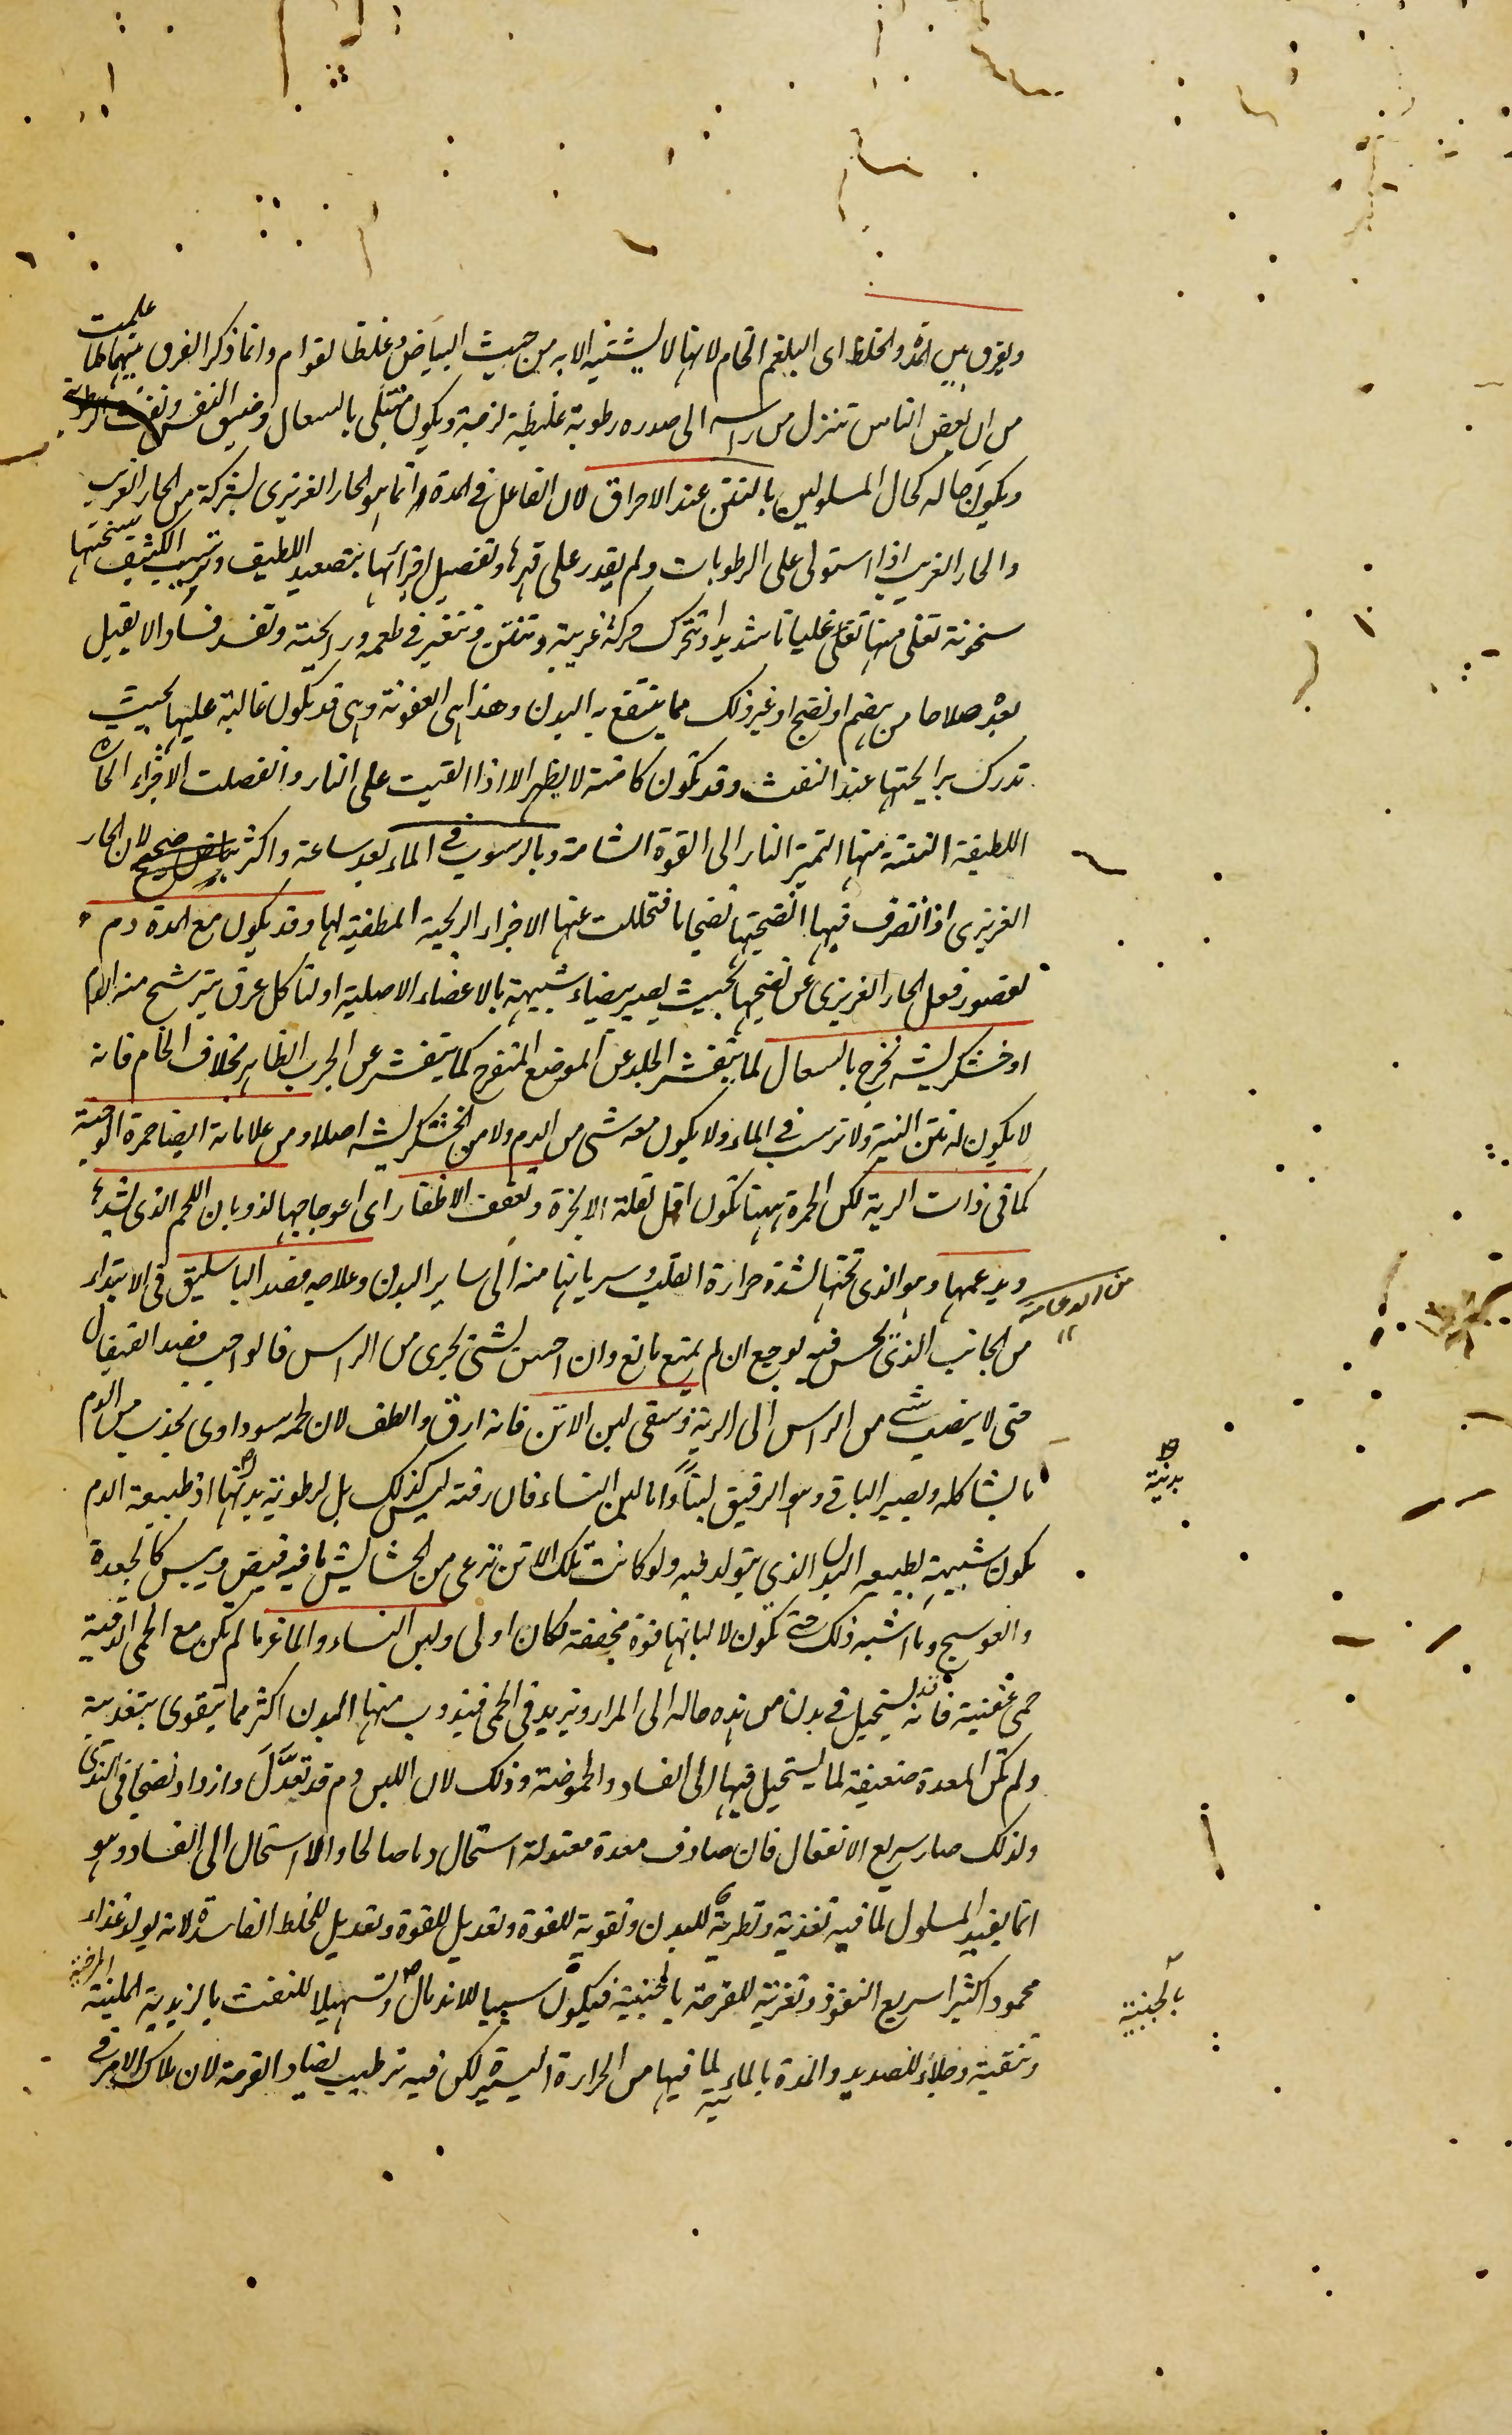 ويفرق بين المدة والخلط اى البلغم الخام لانها لا يشتبه الا به من حيث البياض وغلظ القوام وانما ذكر الفرق بينهما لما علمت
من ان بعض الناس تنزل من راسه الى صدره رطوبة غليظة لزجة ويكون مبتلى بالسعال وضيق النفس ونفث الرطوبة
ويكون حاله كحال المسلولين بالنتن عند الاحراق لان الفاعل فى المدة وانما هو الحار الغريزى لشركة من الحار الغريب
والحار الغريب اذا استولى على الرطوبات ولم يقدر على قهرها وتفصيل اجزائها بتصعيد اللطيف وترسيب الكثيف سخنتها
سخونة تغلى منها غليانا شديدا وتتحرك حركة غريبة وتنتن وتتغير فى طعمه ورايحته وتفسد فسادا لا يقبل
بعده صلاحا من هضم او نضج او غير ذلك مما ينتفع به البدن وهذا هى العفونة وهى قد يكون غالبة عليها بحيث
تدرك برايحتها عند النفث وقد تكون كامنة لا يظهر الا اذا القيت على النار وانفصلت الاجزاء الحارة
اللطيفة النتنة منها لتميز النار الى القوة الشامة وبالرسوب فى الماء بعد ساعة واكثر لان الحار
الغريزى اذا تصرف فيها انضجتها نضجا ما فتحللت عنها الاجزاء الريحية المطفية لها وقد يكون مع المدة دم
لقصور فعل الحار الغريزى عن نضجها بحيث يصير بيضاء شبيهة بالاعضاء الاصلية او لتاكل عرق يترشح منه الدم
او خشكريشه يخرج بالسعال لما يتقشر الجلد عن الموضع المتقرح كما يتقشر عن الجرب الظاهر بخلاف الخام فانه
لا يكون له نتن البتة ولا ترسب فى الماء ولا يكون معه شى من الدم ولا من الخشكريشه اصلا ومن علاماته ايضا حمرة الوجنة
كما فى ذات الرية لكن الحمرة ههنا تكون اقل لقلة الابخرة وتعقف الاظفار اى اعوجاجها لذوبان اللحم الذى يشدها
ويدعمها وهو الذى تحتها لشدة حرارة القلب وسريانها منه الى ساير البدن وعلاجه فصد الباسليق فى الابتداء
من الدعامة
من الجانب الذى يحس فيه بوجع ان لم يمنع مانع وان احس بشى يجرى من الراس فالواجب فصد القيفال
حتى لا ينصب شى من الراس الى الرية وسقى لبن الاتن فانه ارق والطف لان لحمه سوداوى يجذب من الدم
ما يشاكله ويصير الباقى وهو الرقيق لبنا واما لبن النساء فان رقته ليس كذلك بل لرطوبة بدنها اذ طبيعة الدم
بدنية
يكون شبيهة بطبيعه البدن الذي يتولد فيه ولو كانت تلك الاتن ترعى من الحشايش ما فيه قبض ويبس كالجعدة
والعوسج وما اشبه ذلك حتى يكون لالبانها قوة مجففة لكان اولى ولبن النساء والماعز ما لم يكن مع الحمى الدقية
حمى عفنية فانه قد يستحيل فى بدن من هذه حاله الى المرار ويزيد فى الحمى فيذوب منها البدن اكثر مما يتقوى بتغذية
ولم تكن المعدة ضعيفة لما يستحيل فيها الى الفساد والحموضة وذلك لان اللبن دم قد تعدل وازداد نضجا فى الثدى
ولذلك صار سريع الانفعال فان صادف معدة معتدلة استحال دما صالحا والا استحال الى الفساد وهو
انما يفيد المسلول لما فيه تغذية وتطرية للبدن وتقوية للقوة وتعديل للخلط الفاسد لانه يولد غذاء
محمودا كثيرا سريع النفوذ وتغرية للقرحة بالجبنية فيكون سببا للاندمال وتسهيلا للنفث بالزبدية الملينة المرخية
بالجبنية
وتنقية وجلاء للصديد والمدة بالمائية لما فيها من الحرارة اليسيرة لكن فيه ترطيب يضاد القرحة لان ملاك الامر فى